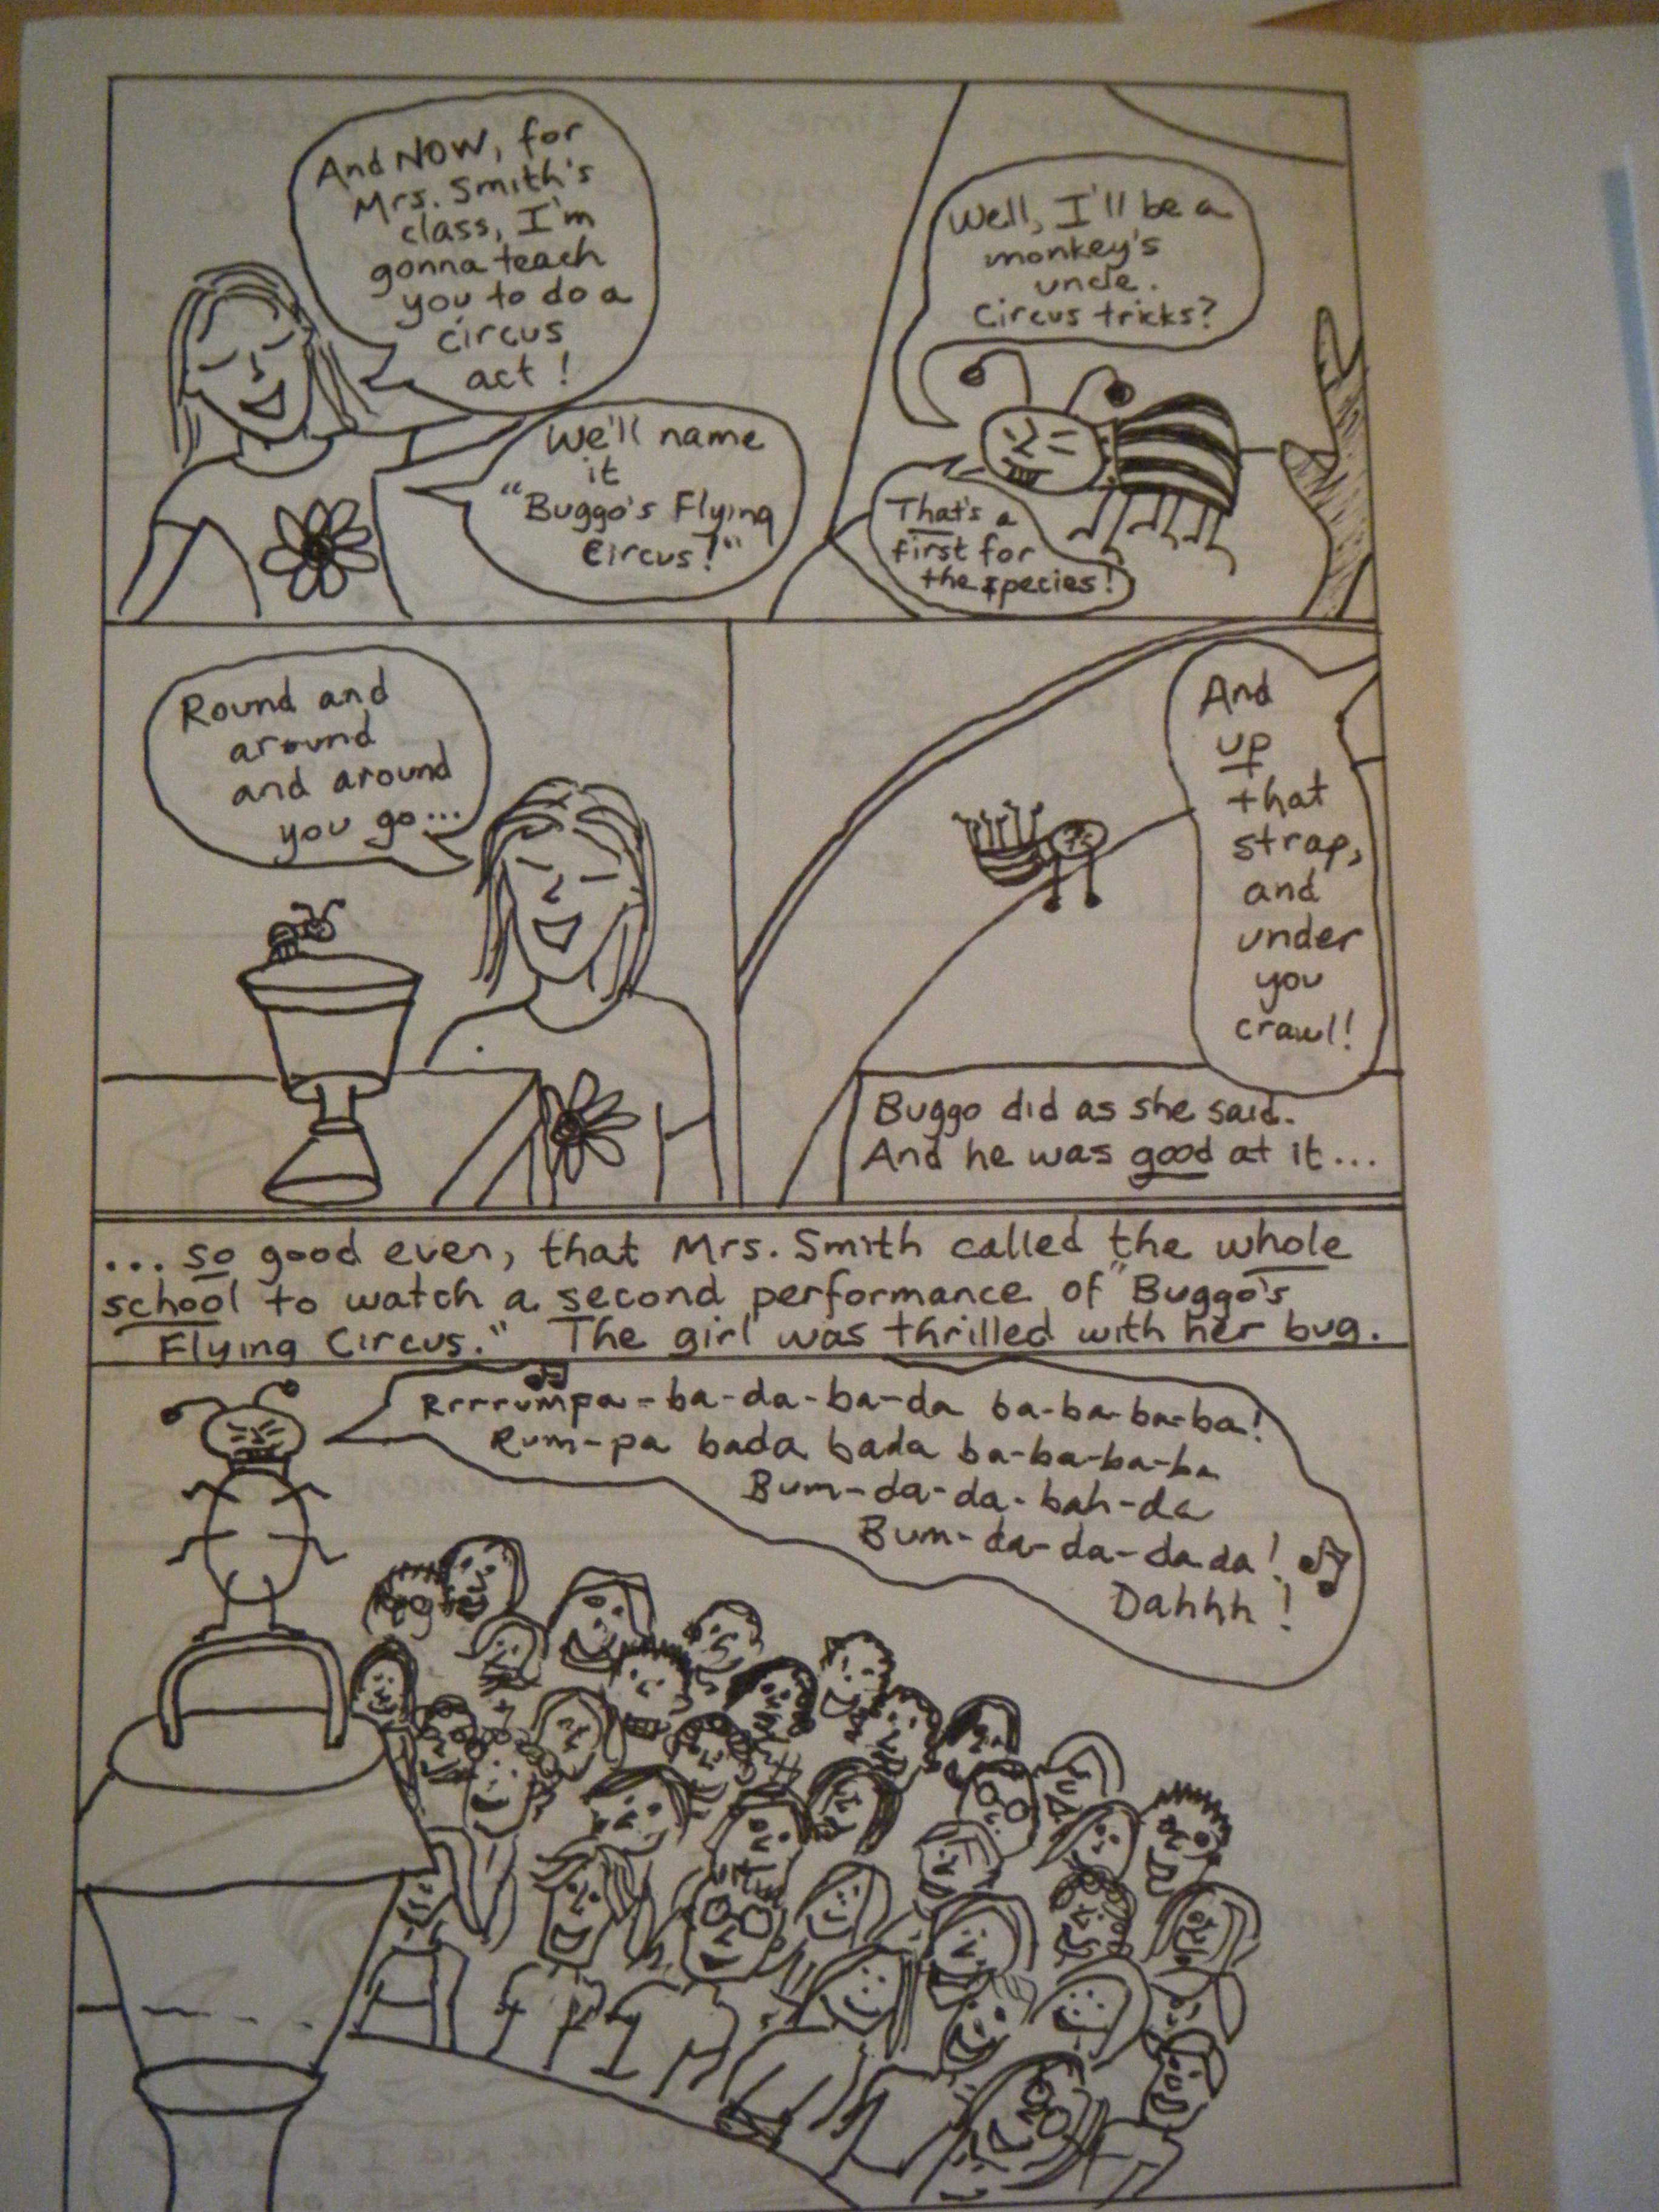 And NOW, for
Mrs. Smith's
class, I'm
gonna teach
you to do a
circus
act!
We'll name
it
"Buggo's Flying
Circus!"
Well, I'll be a
monkey's
uncle.
Circus tricks?
That's a
first for
the species!
Round and
around
and around
you go...
And
up
that
strap,
and
under
you
crawl!
Buggo did as she said.
And he was good at it...
...so good even, that Mrs. Smith called the whole
school to watch a second performance of "Buggo's
Flying Circus." The girl was thrilled with her bug.
Rrrrumpa-ba-da-ba-da ba-ba-ba-ba!
Rum-pa bada bada ba-ba-ba-ba
Bum-da-da-bah-da
Bum-da-da-da da!
Dahhh!